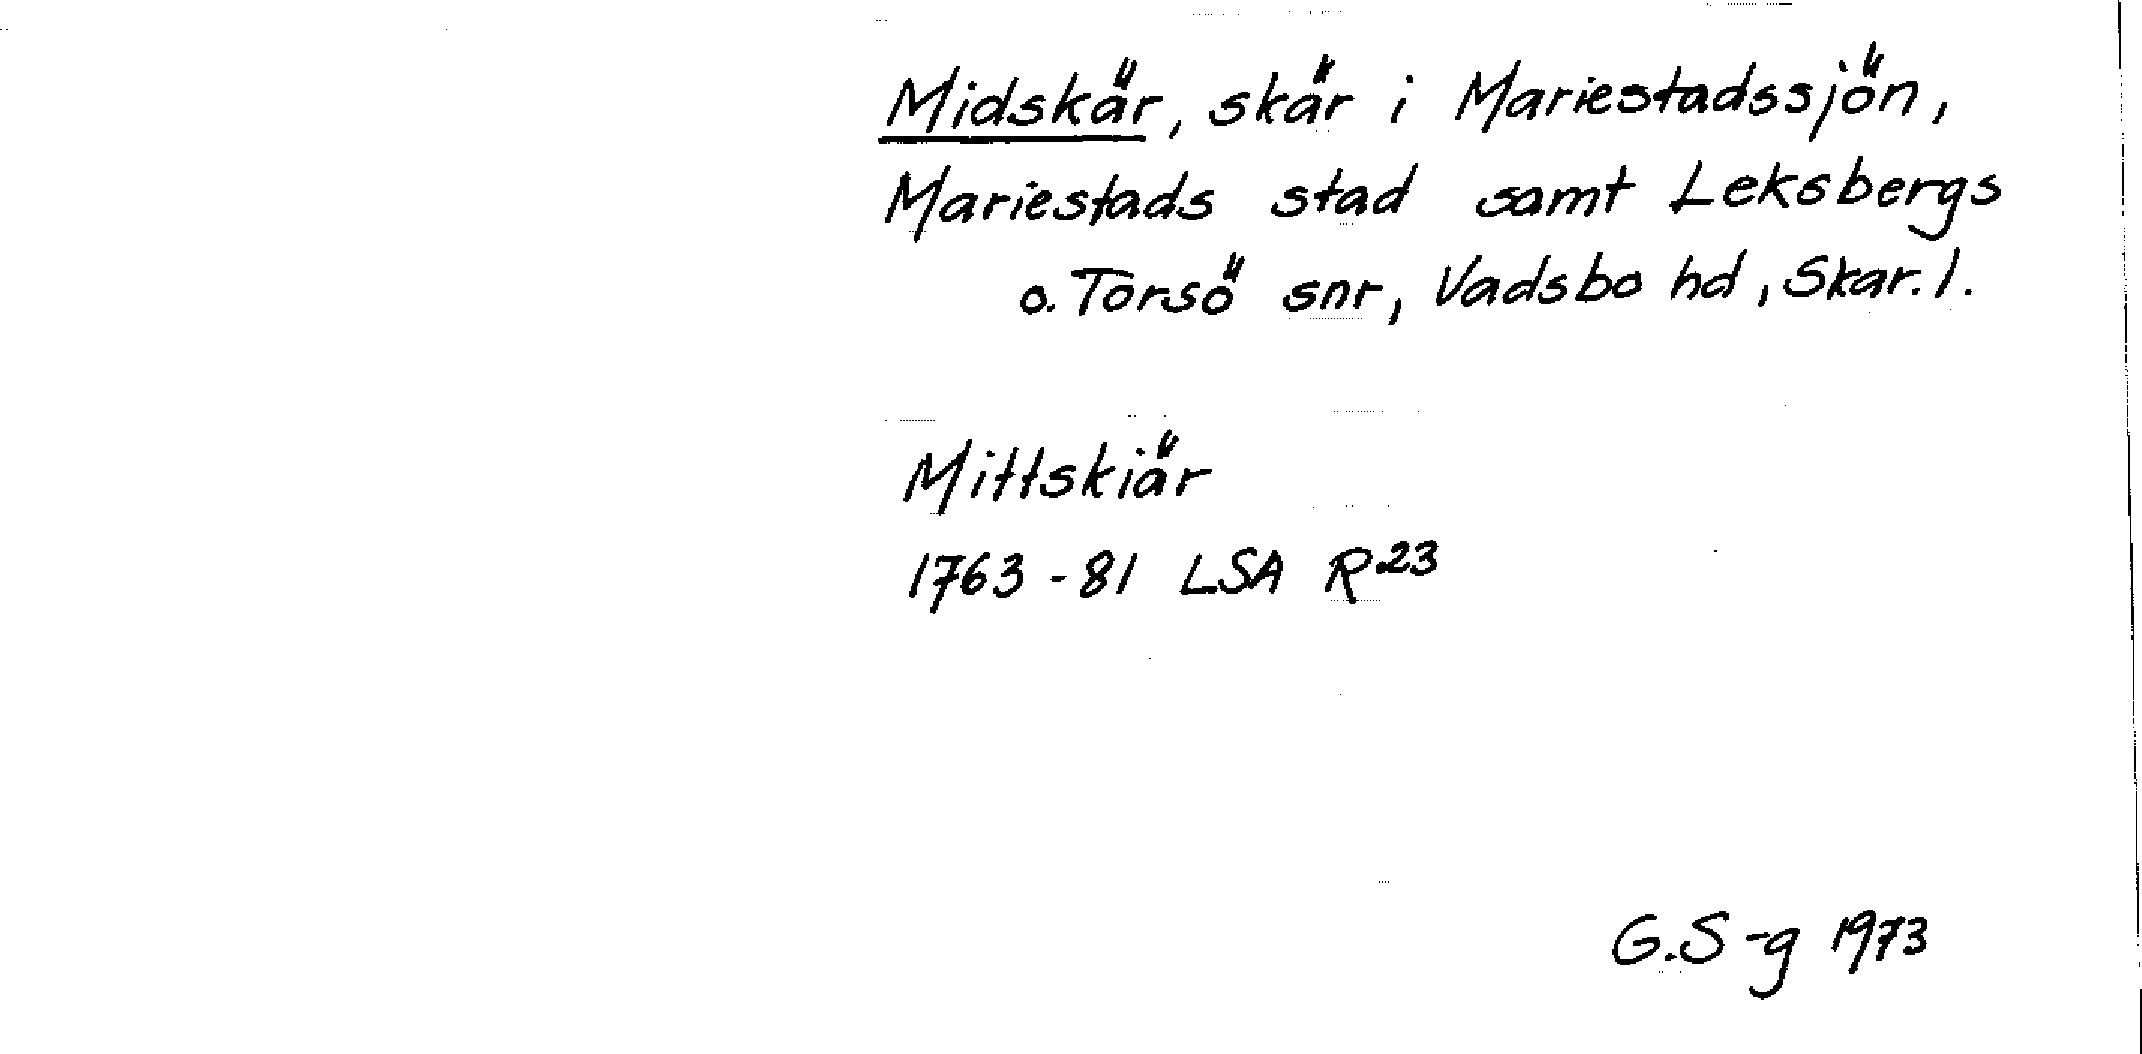 Midskär, skär i Mariestadssjön,
Mariestads stad samt Leksbergs
o. Torsö snr, Vadsbo hd, Skar. l.
Mittskiär
1763-81 LSA R23
G.S-g 1973